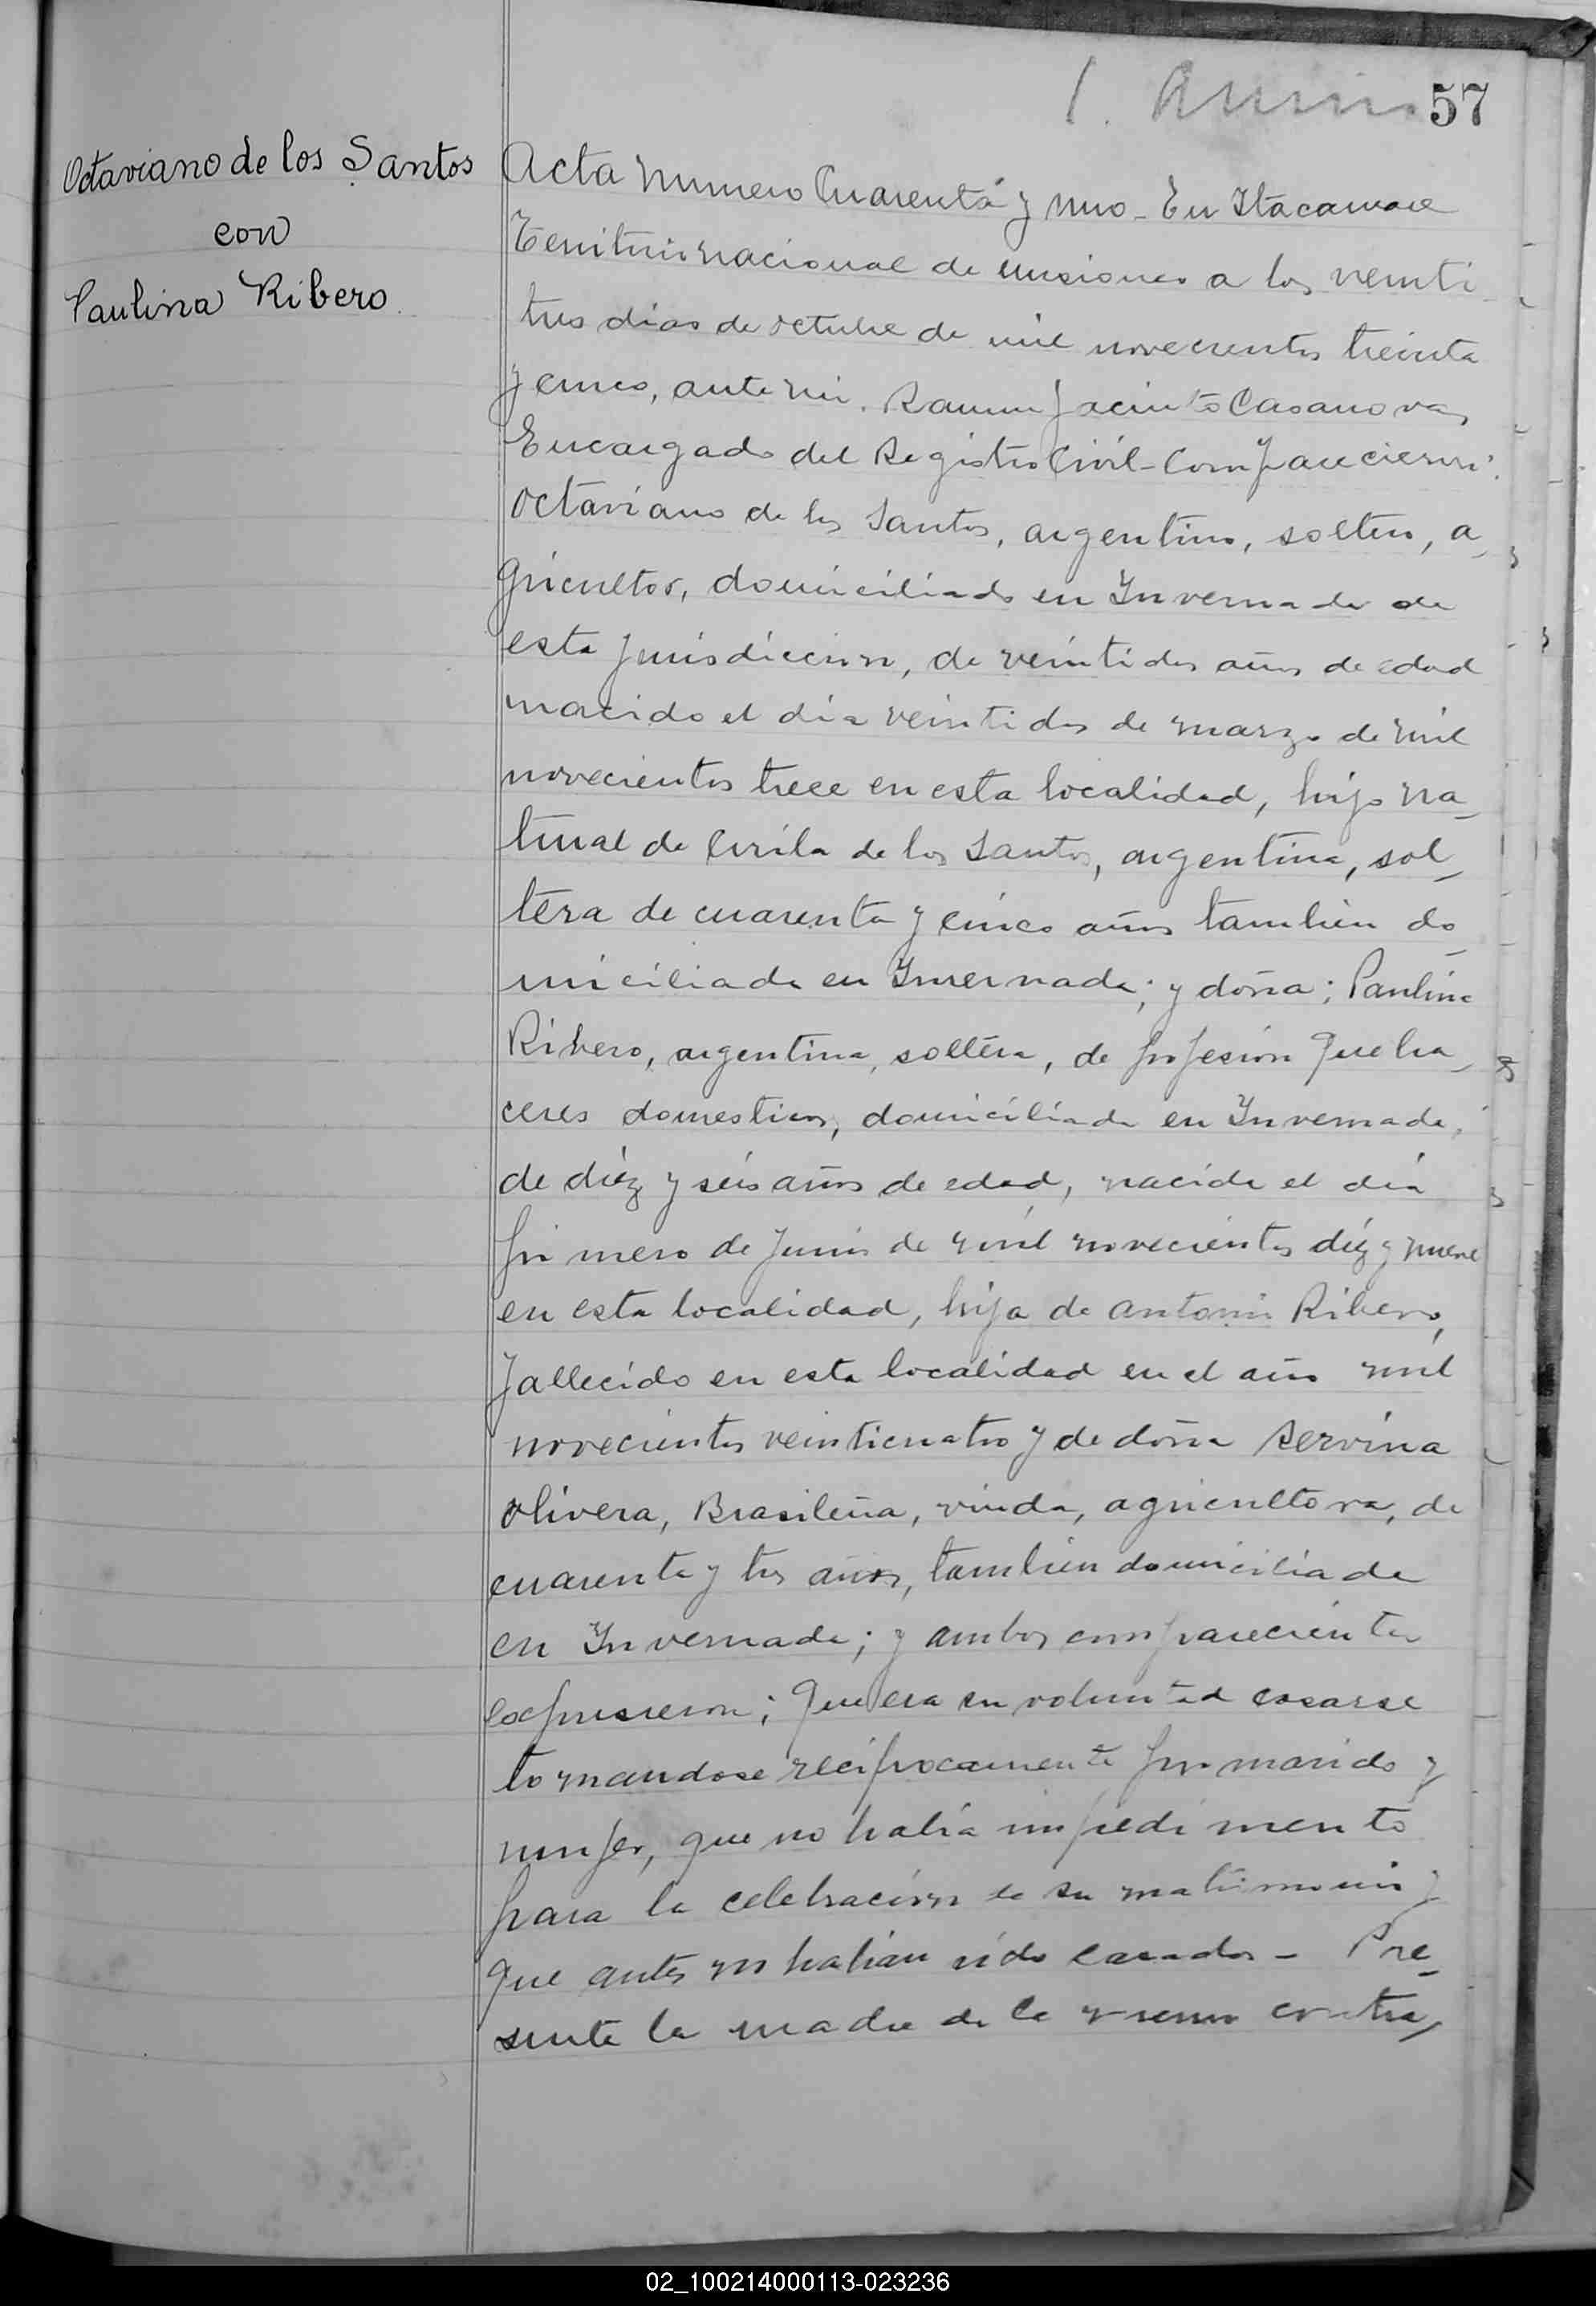 57
Octaviano de los Santos
con
Paulina Ribero
Acta numero Cuarenta y uno - En Itacaruare
Territorio nacional de misiones a los veinti
tres dias de octubre de mil novecientos treinta
y cinco, ante mi. Ramon Jacinto Casanova,
Encargado del Registro Civil - Comparecieron:
Octaviano de los Santos, argentino, soltero, a_
gricultor, domiciliado en Invernada de
esta jurisdiccion, de veintidos años de edad
nacido el dia veintidos de marzo de mil
novecientos trece en esta localidad, hijo na_
tural de Cirila de los Santos, argentina, sol_
tera de cuarenta y cinco años tambien do_
miciliada en Invernada; y doña; Paulina
Ribero, argentina, soltera, de profesion Queha_
ceres domesticos, domiciliada en Invernada,
de diéz y séis años de edad, nacida el dia
primero de Junio de mil novecientos diéz y nueve
en esta localidad, hija de Antonio Ribero,
fallecido en esta localidad en el año mil
novecientos veinticuatro y de doña Servina
Olivera, Brasileña, viuda, agricultora, de
cuarenta y tres años, tambien domiciliada
en Invernada; y ambos comparecientes
expusieron; Que era su voluntad casarse
tomandose reciprocamente por marido y
mujer, que no habia impedimento
para la celebracion de su matrimonio y
que antes no habian sido casados - Pre_
sente la madre de la contra_
02_100214000113-023236